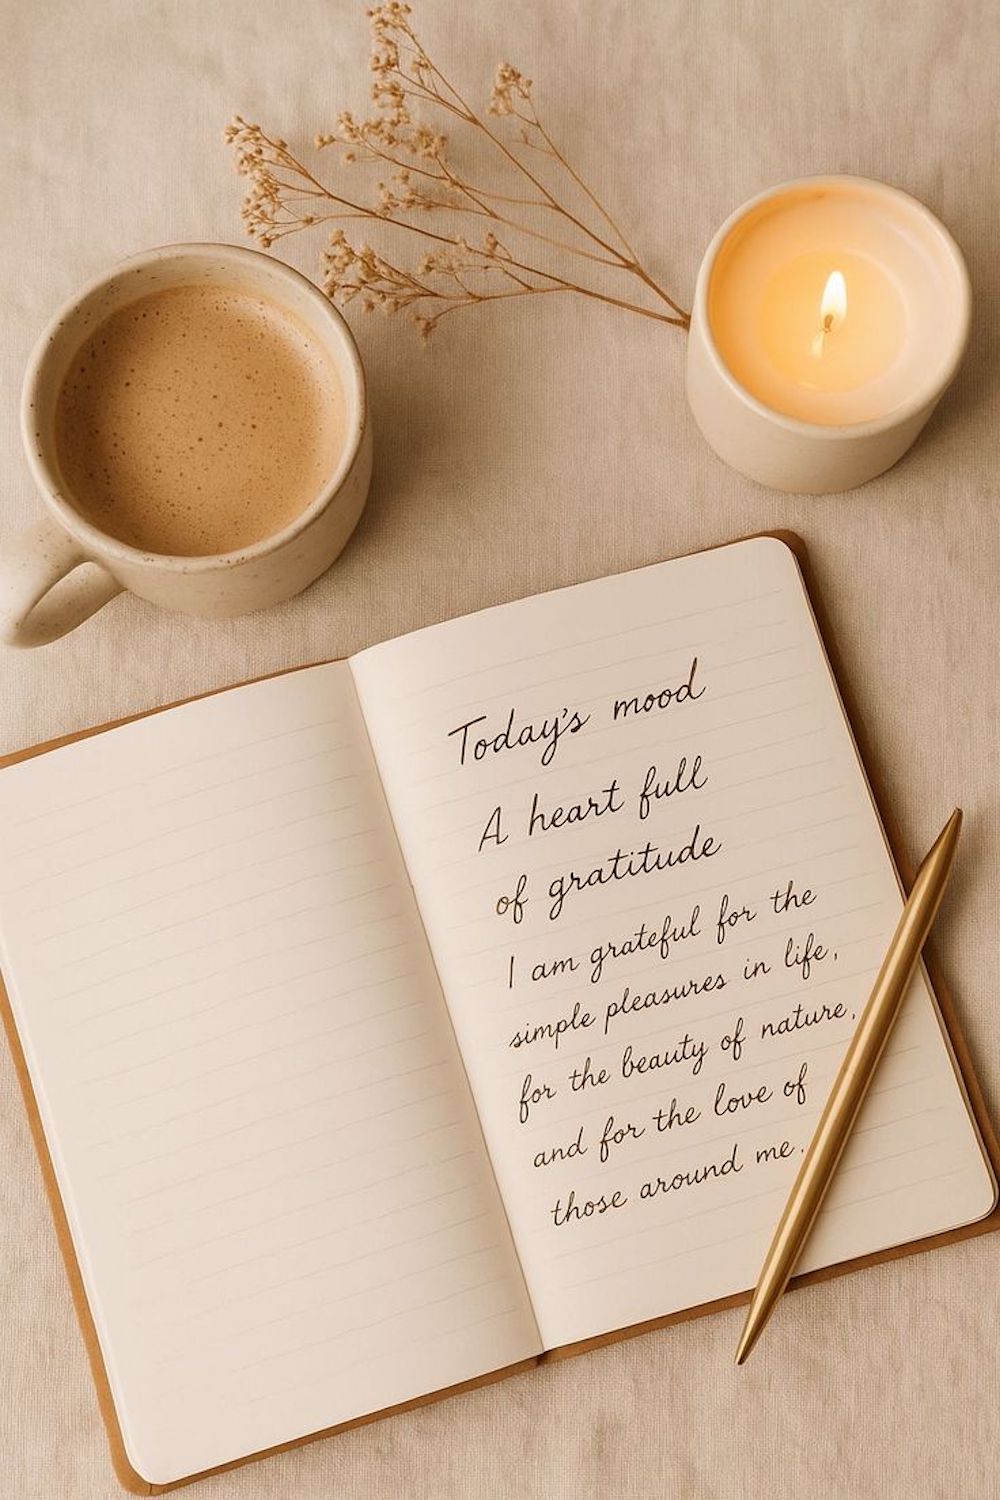 Today's mood
A heart full
of gratitude
I am grateful for the
simple pleasures in life,
for the beauty of nature,
and for the love of
those around me.